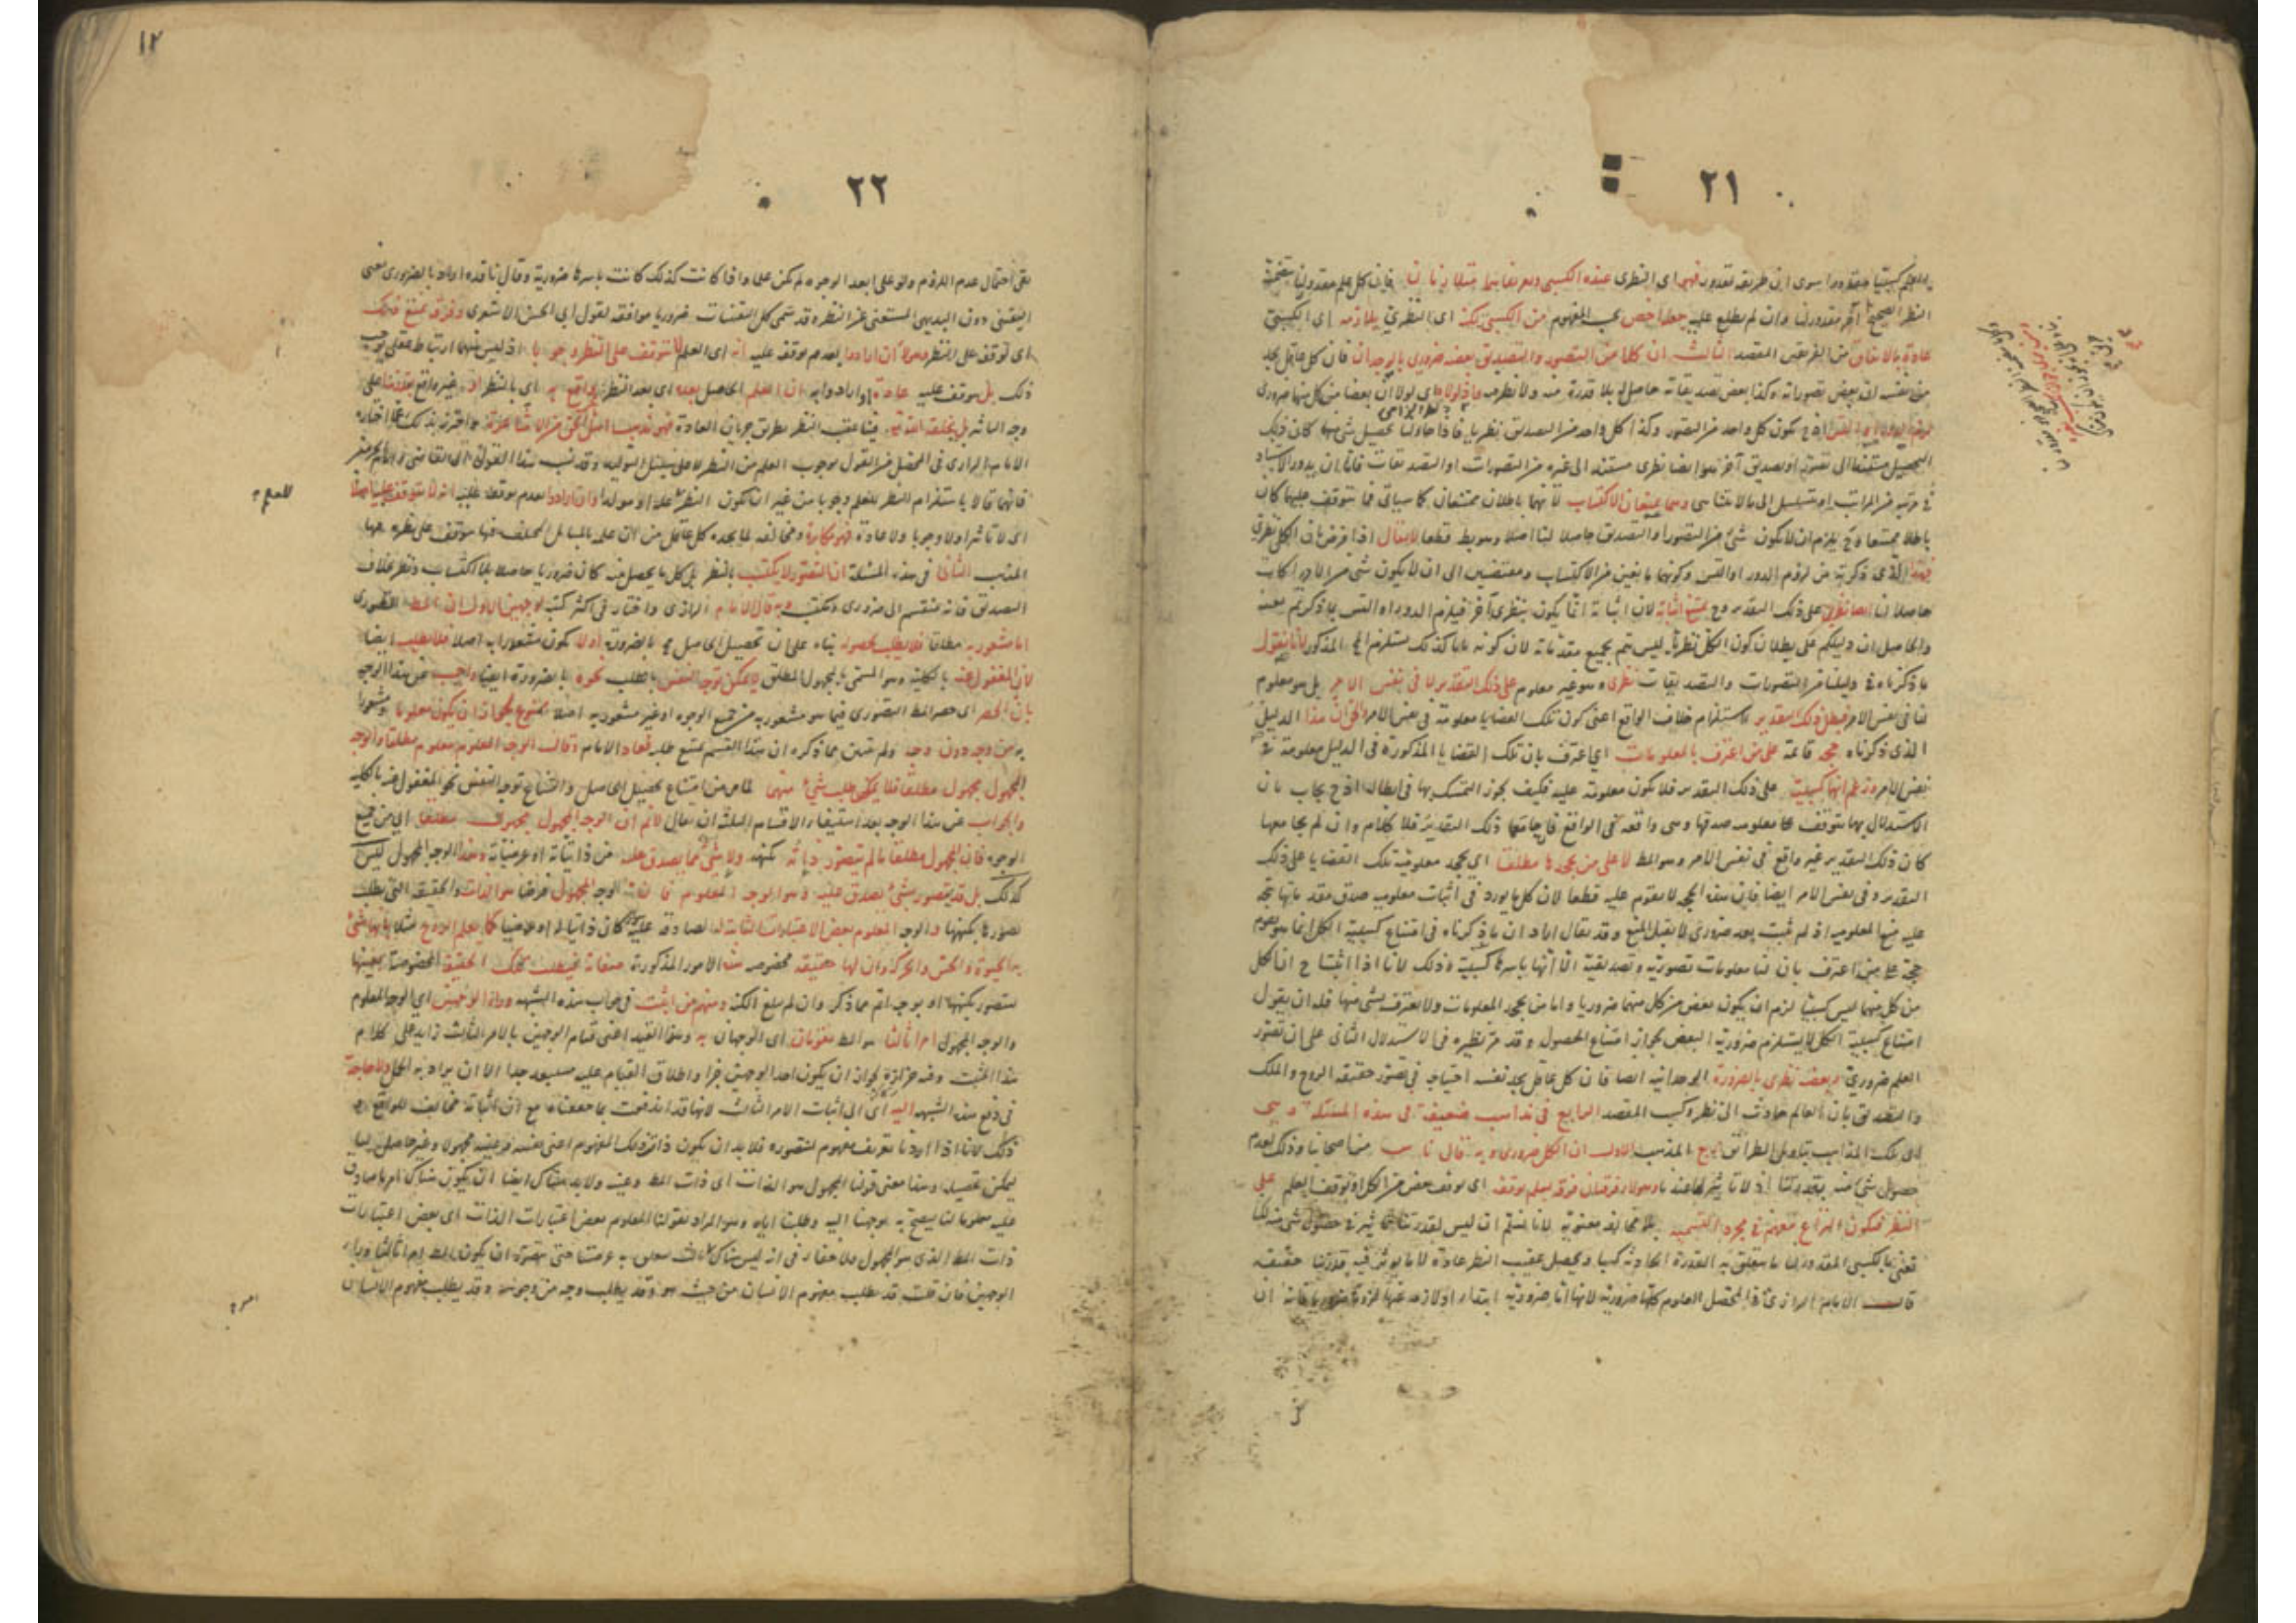 ٢١
النظر الصحيح آخر مقدورنا وان لم يطلع عليه جعله اخص بحسب المفهوم من الكسبى لكنه اى النظرى يلازمه اى الكسبى
عادة بالاتفاق من الفريقين المقصد الثالث ان كلا من التصور والتصديق بعضه ضرورى بالوجدان فان كل عاقل يجد
من نفسه ان بعض تصوراته وكذا بعض تصديقاته حاصل له بلا قدرة منه ولا نظر فيه واذ لولاه اى لولا ان بعضا من كل منهما ضرورى
لزم الدور او التس اذ ح يكون كل واحد من التصور وكذا كل واحد من التصديق نظريا فاذا حاولنا تحصيل شئ منهما كان ذلك
التحصيل مستندا الى تصور او تصديق آخر هو ايضا نظرى مستند الى غيره من التصورات او التصديقات فاما ان يدور الاستناد
فى مرتبة من المراتب او يتسلسل الى ما لا يتناهى وهما يمنعان الاكتساب لانهما باطلان ممتنعان كما سياتى فما يتوقف عليهما كان
باطلا ممتنعا وح يلزم ان لا يكون شئ من التصور والتصديق حاصلا لنا اصلا وهو بط قطعا لا يقال اذا فرض ان الكل نظرى
فهذا الذى ذكرتم من لزوم الدور او التس وكونهما مانعين من الاكتساب ومفضيين الى ان لا يكون شئ من الادراكات
حاصلا لنا ايضا نظرى على ذلك التقدير وح يمتنع اثباته لان اثباته انما يكون بنظرى آخر فيلزم الدور او التس بما ذكرتم بعينه
والحاصل ان دليلكم على بطلان كون الكل نظريا ليس يتم بجميع مقدماته لان كونه تاما كذلك يستلزم المح المذكور لانا نقول
ما ذكرناه فى دليلنا من التصورات والتصديقات نظرى وهو غير معلوم على ذلك التقدير لا فى نفس الامر بل هو معلوم
لنا فى نفس الامر فبطل ذلك التقدير لاستلزام خلاف الواقع اعنى كون تلك القضايا معلومة فى نفس الامر والحق ان هذا الدليل
الذى ذكرناه حجة قائمة على من اعترف بالمعلومات اى اعترف بان تلك القضايا المذكورة فى الدليل معلومة فى
نفس الامر وزعم انها كسبية على ذلك التقدير فلا تكون معلومة عليه فكيف يجوز التمسك بها فى ابطاله اذ ح يجاب بان
الاستدلال بها يتوقف على معلومية صدقها وهى واقعة فى الواقع فان جامعها ذلك التقدير فلا كلام وان لم يجامعها
كان ذلك التقدير غير واقع فى نفس الامر وهو المط لا على من يجحدها مطلقا اى يجحد معلومية تلك القضايا على ذلك
التقدير وفى نفس الامر ايضا فان هذه الحجة لا تقوم عليه قطعا لان كل ما يورد فى اثبات معلومية صدق مقدماتها يتجه
عليه منع المعلومية اذ لم يثبت بعد ضرورى لا يقبل المنع وقد يقال اراد ان ما ذكرناه فى امتناع كسبية الكل انما يقوم
حجة على من اعترف بان لنا معلومات تصورية وتصديقية الا انها باسرها كسبية وذلك لانا اذا اثبتنا ح ان الكل
من كل منهما ليس كسبيا لزم ان يكون بعض من كل منهما ضروريا واما من يجحد المعلومات ولا يعترف بشئ منها فله ان يقول
امتناع كسبية الكل لا يستلزم ضرورية البعض لجواز امتناع الحصول وقد مر نظيره فى الاستدلال الثانى على ان تصور
العلم ضرورى وبعضه نظرى بالضرورة الوجدانية ايضا فان كل عاقل يجد نفسه احتياجه فى تصور حقيقة الروح والملك
والتصديق بان العالم حادث الى نظر وكسب المقصد الرابع فى مذاهب ضعيفة فى هذه المسئلة وهى
اى تلك المذاهب المذهب الاول ان الكل ضرورى وبه قال ناس من اصحابنا وذلك لعدم
حصول شئ منه بقدرتنا اذ لا تاثير لها عندنا وهؤلاء فرقتان فرقة تسلم توقفه اى توقف بعض من الكل او توقف العلم على
النظر فيكون النزاع معهم فى مجرد التسمية بلا مخالفة معنوية لانا نسلم ان ليس لقدرتنا تاثير فى حصول شئ منه لكنا
نعنى بالكسبى المقدور لنا ما يتعلق به القدرة الحادثة كسبا ويحصل عقيب النظر عادة لا ما يؤثر فيه قدرتنا حقيقة
قال الامام الرازى فى المحصل العلوم كلها ضرورية لانها اما ضرورية ابتداء او لازمة عنها لزوما ضروريا فانه ان
١٢
٢٢
بقى احتمال عدم اللزوم ولو على ابعد الوجوه لم يكن علما واذا كانت كذلك كانت باسرها ضرورية وقال ناقده اراد بالضرورى معنى
اليقينى دون البديهى المستغنى عن النظر وقد سمى كل اليقينيات ضروريا موافقة لقول ابى الحسن الاشعرى وفرقة تمنع ذلك
اى توقفه على النظر وهؤلاء ان ارادوا بعدم توقفه عليه انه اى العلم لا يتوقف على النظر وجوبا اذ ليس بينهما ارتباط عقلى يوجب
ذلك بل يتوقف عليه عادة او ارادوا به ان العلم الحاصل بعده اى بعد النظر غير واقع به اى بالنظر او غير واقع بقدرتنا على
وجه التاثير بل بخلقه الله تع فينا عقيب النظر بطريق جريان العادة فهو مذهب اهل الحق من الاشاعرة واحترز بذلك عما اختاره
الامام الرازى فى المحصل من القول بوجوب العلم من النظر لا على سبيل التوليد وقد نسب هذا القول الى القاضى وامام الحرمين
فانهما قالا باستلزام النظر للعلم وجوبا من غير ان يكون النظر علة او مولدا وان ارادوا بعدم توقفه عليه انه لا يتوقف عليه اصلا
اى لا تاثيرا ولا وجوبا ولا عادة فهو مكابرة ومخالفة لما يجده كل عاقل من ان علمه بالمسائل المختلف فيها متوقف على نظره فيها
المذهب الثانى فى هذه المسئلة ان التصور لا يكتسب بالنظر بل كل ما يحصل منه كان ضروريا حاصلا بلا اكتساب ونظر بخلاف
التصديق فانه منقسم الى ضرورى ومكتسب وبه قال الامام الرازى واختاره فى اكثر كتبه لوجهين الاول ان المط التصورى
اما مشعور به مطلقا فلا يطلب لحصوله بناء على ان تحصيل الحاصل مح بالضرورة او لا يكون مشعورا به اصلا فلا يطلب ايضا
لان المغفول عنه بالكلية وهو المسمى بالمجهول المطلق لا يمكن توجه النفس بالطلب نحوه بالضرورة ايضا واجيب عن هذا الوجه
بان الحصر اى حصر المط التصورى فيما هو مشعور به من جميع الوجوه او غير مشعور به اصلا ممنوع لجواز ان يكون معلوما ومشعورا
به من وجه دون وجه ولم يتبين مما ذكره ان هذا القسم يمتنع طلبه فعاد الامام وقال الوجه المعلوم معلوم مطلقا والوجه
المجهول مجهول مطلقا فلا يمكن طلب شئ منهما لما مر من امتناع تحصيل الحاصل وامتناع توجه النفس نحو المغفول عنه بالكلية
والجواب عن هذا الوجه بعد استيفاء الاقسام الثلثة ان يقال لا نم ان الوجه المجهول مجهول مطلقا اى من جميع
الوجوه فان المجهول مطلقا ما لم يتصور ذاته بكنهه ولا شئ مما يصدق عليه من ذاتياته او عرضياته وهذا الوجه المجهول ليس
كذلك بل قد يتصور بشئ يصدق عليه وهو الوجه المعلوم فان الوجه المجهول فرضا هو الذات والحقيقة التى يطلب
تصورها بكنهها والوجه المعلوم بعض الاعتبارات الثابتة له الصادقة عليه سواء كان ذاتيا له او عرضيا كما يعلم الروح مثلا بانها شئ
به الحيوة والحس والحركة وان لها حقيقة مخصوصة هذه الامور المذكورة صفاته فيطلب تلك الحقيقة المخصوصة بعينها
لتتصور بكنهها او بوجه اتم مما ذكر وان لم يبلغ الكنه ومنهم من اثبت فى جواب هذه الشبهة وراء الوجهين اى الوجه المعلوم
والوجه المجهول امرا ثالثا هو المط يقومان اى الوجهان به وهذا القيد اعنى قيام الوجهين بالامر الثالث زايد على كلام
هذا المثبت وفيه حزازة لجواز ان يكون احد الوجهين جزءا واطلاق القيام عليه مستبعد جدا الا ان يراد به الحمل ولا حاجة
فى دفع هذه الشبهة اليه اى الى اثبات الامر الثالث لانها قد اندفعت بما حققناه مع ان اثباته مخالف للواقع و
ذلك لانا اذا اردنا تعريف مفهوم لنتصوره فلا بد ان يكون ذات ذلك المفهوم اعنى نفسه وعينه مجهولا وغير حاصل لنا
ليمكن تحصيله وهذا معنى قولنا المجهول هو الذات اى ذات المط وعينه ولا بد هناك ايضا ان يكون هناك امر ما صادق
عليه معلوما لنا ليصح به توجهنا اليه وطلبنا اياه وهو المراد بقولنا المعلوم بعض اعتبارات الذات اى بعض اعتبارات
ذات المط الذى هو المجهول فلا خفاء فى انه ليس هناك ثالث يتعلق به غرضنا حتى يتصور ان يكون المط امرا ثالثا وراء
الوجهين فان قلت قد يطلب مفهوم الانسان من حيث هو وقد يطلب وجه من وجوهه وقد يطلب مفهوم الانسان